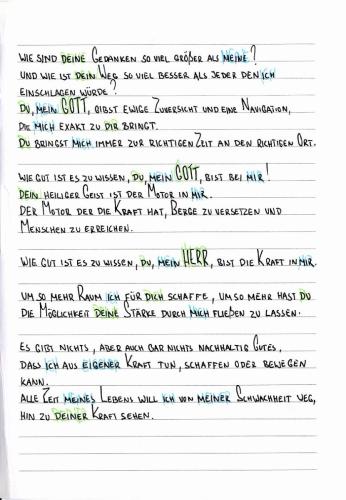 Wie sind deine Gedanken so viel größer als meine?
Und wie ist dein Weg so viel besser als jeder den ich
einschlagen würde?
Du, mein GOTT, gibst ewige Zuversicht und eine Navigation,
die mich exakt zu dir bringt.
Du bringst mich immer zur richtigen Zeit an den richtigen Ort.
Wie gut ist es zu wissen, du, mein GOTT, bist bei mir!
Dein heiliger Geist ist der Motor in mir.
Der Motor der die Kraft hat, Berge zu versetzen und
Menschen zu erreichen.
Wie gut ist es zu wissen, du, mein HERR, bist die Kraft in mir.
Um so mehr Raum ich für dich schaffe, um so mehr hast du
die Möglichkeit deine Stärke durch mich fließen zu lassen.
Es gibt nichts, aber auch gar nichts nachhaltig Gutes,
dass ich aus eigener Kraft tun, schaffen oder bewegen
kann.
Alle Zeit meines Lebens will ich von meiner Schwachheit weg,
hin zu deiner Kraft sehen.